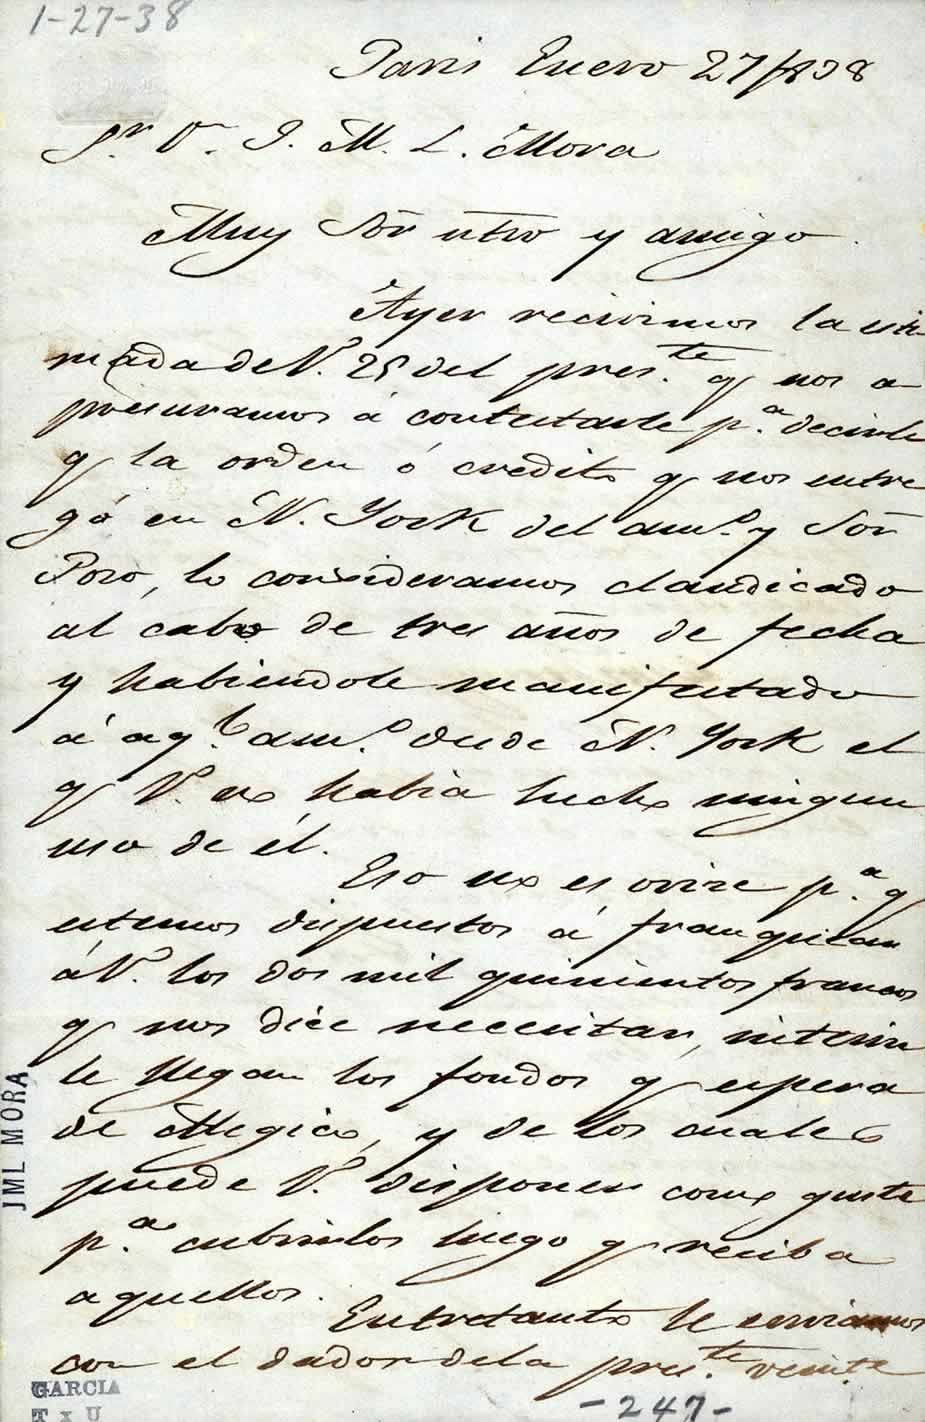 1-27-38
Paris Enero 27/838
Sr. D. J. M. L. Mora
Muy Sór ntro y amigo.
Ayer recivimos la esti
mada de V. 25 del pres.te q nos a
presuramos á contestarle p.a decirle
q la orden ó credito q nos entre
gó en N. York del am.o y Sór
Pozo, lo consideramos claudicado
al cabo de tres años de fecha
y habiendole manifestado
á aq.l am.o desde N. York el
q V. no habia hecho ningun
uso de él.
Eso no es p.a q
estemos dispuestos á franquear
á V. los dos mil quinientos francos
q nos dice necesitar, interin
le llegan los fondos q espera
de Megico, y de los cuales
puede V. disponer como guste
p.a cubrirlos luego q reciba
aquellos.
Entretanto le enviamos
con el dador dela pres.te veinte
JML MORA
GARCIA
T x U
-247-